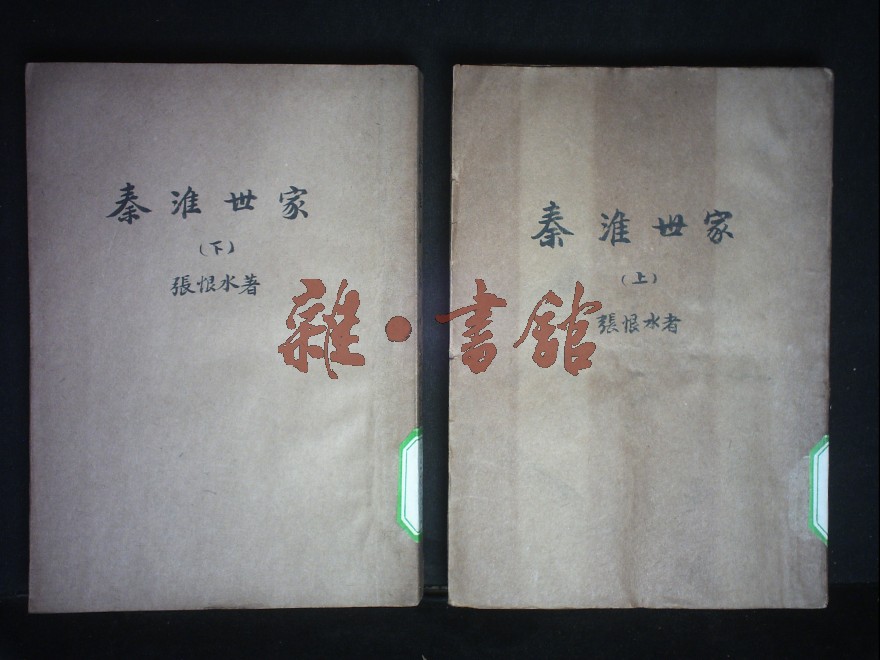 秦淮世家
(下)
張恨水著
秦淮世家
(上)
張恨水者
雜·書館